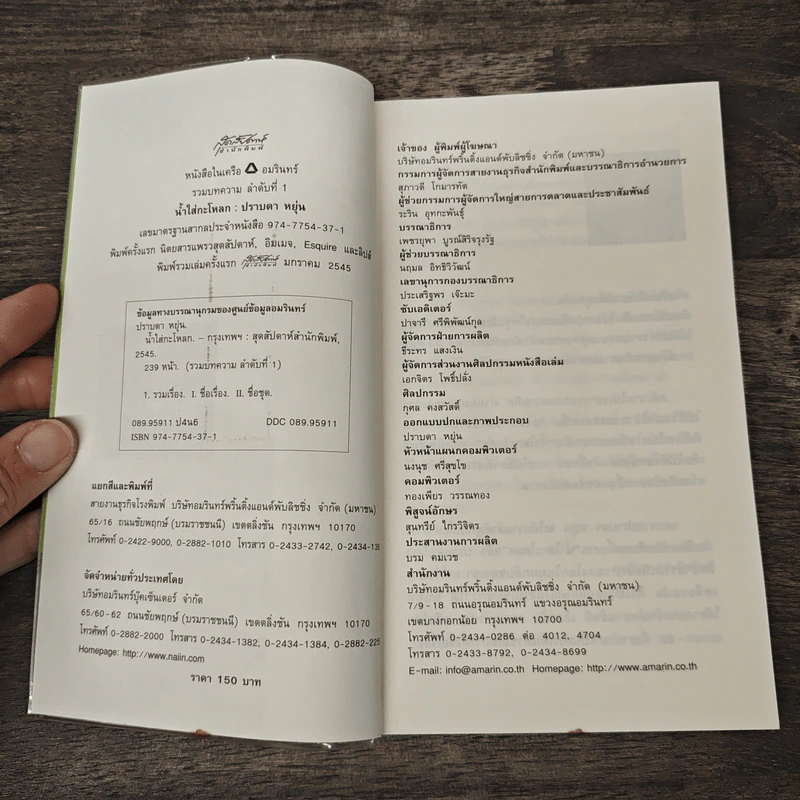 สุดสัปดาห์
สำนักพิมพ์
หนังสือในเครือ อมรินทร์
รวมบทความ ลำดับที่ 1
น้ำใส่กะโหลก : ปราบดา หยุ่น
เลขมาตรฐานสากลประจำหนังสือ 974-7754-37-1
พิมพ์ครั้งแรก นิตยสารแพรวสุดสัปดาห์, อิมเมจ, Esquire และลิปส์
พิมพ์รวมเล่มครั้งแรก สุดสัปดาห์ สำนักพิมพ์ มกราคม 2545
ข้อมูลทางบรรณานุกรมของศูนย์ข้อมูลอมรินทร์
ปราบดา หยุ่น.
น้ำใส่กะโหลก. – กรุงเทพฯ : สุดสัปดาห์สำนักพิมพ์,
2545.
239 หน้า. (รวมบทความ ลำดับที่ 1)
1. รวมเรื่อง. I. ชื่อเรื่อง. II. ชื่อชุด.
089.95911 ป4น6 DDC 089.95911
ISBN 974-7754-37-1
แยกสีและพิมพ์ที่
สายงานธุรกิจโรงพิมพ์ บริษัทอมรินทร์พริ้นติ้งแอนด์พับลิชชิ่ง จำกัด (มหาชน)
65/16 ถนนชัยพฤกษ์ (บรมราชชนนี) เขตตลิ่งชัน กรุงเทพฯ 10170
โทรศัพท์ 0-2422-9000, 0-2882-1010 โทรสาร 0-2433-2742, 0-2434-138
จัดจำหน่ายทั่วประเทศโดย
บริษัทอมรินทร์บุ๊คเซ็นเตอร์ จำกัด
65/60-62 ถนนชัยพฤกษ์ (บรมราชชนนี) เขตตลิ่งชัน กรุงเทพฯ 10170
โทรศัพท์ 0-2882-2000 โทรสาร 0-2434-1382, 0-2434-1384, 0-2882-225
Homepage: http://www.naiin.com
ราคา 150 บาท
เจ้าของ ผู้พิมพ์ผู้โฆษณา
บริษัทอมรินทร์พริ้นติ้งแอนด์พับลิชชิ่ง จำกัด (มหาชน)
กรรมการผู้จัดการสายงานธุรกิจสำนักพิมพ์และบรรณาธิการอำนวยการ
สุภาวดี โกมารทัต
ผู้ช่วยกรรมการผู้จัดการใหญ่สายการตลาดและประชาสัมพันธ์
ระริน อุทกะพันธุ์
บรรณาธิการ
เพชรยุพา บูรณ์สิริจรุงรัฐ
ผู้ช่วยบรรณาธิการ
นฤมล อิทธิวิวัฒน์
เลขานุการกองบรรณาธิการ
ประเสริฐพร เจ๊ะมะ
ซับเอดิเตอร์
ปาจารี ศรีพิพัฒน์กุล
ผู้จัดการฝ่ายการผลิต
ธีระทร แสงเงิน
ผู้จัดการส่วนงานศิลปกรรมหนังสือเล่ม
เอกจิตร โพธิ์ปลั่ง
ศิลปกรรม
กุศล คงสวัสดิ์
ออกแบบปกและภาพประกอบ
ปราบดา หยุ่น
หัวหน้าแผนกคอมพิวเตอร์
นงนุช ศรีสุขโข
คอมพิวเตอร์
ทองเพียร วรรณทอง
พิสูจน์อักษร
สุนทรีย์ ไกรวิจิตร
ประสานงานการผลิต
บรม คมเวช
สำนักงาน
บริษัทอมรินทร์พริ้นติ้งแอนด์พับลิชชิ่ง จำกัด (มหาชน)
7/9-18 ถนนอรุณอมรินทร์ แขวงอรุณอมรินทร์
เขตบางกอกน้อย กรุงเทพฯ 10700
โทรศัพท์ 0-2434-0286 ต่อ 4012, 4704
โทรสาร 0-2433-8792, 0-2434-8699
E-mail: info@amarin.co.th Homepage: http://www.amarin.co.th